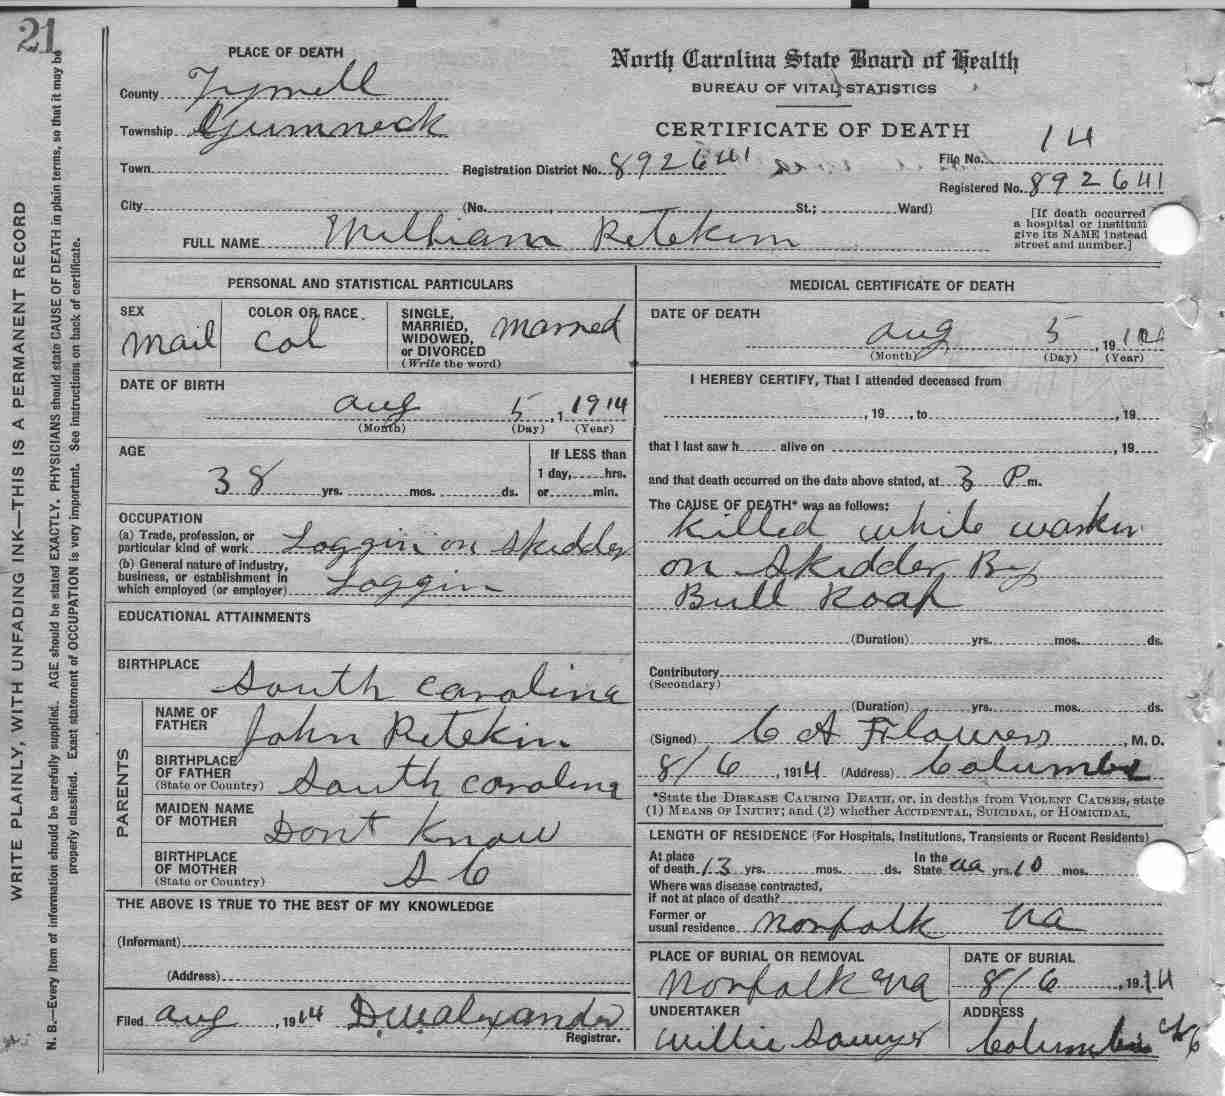 21
PLACE OF DEATH
County Tyrrell
Township Gumneck
Town
City
North Carolina State Board of Health
BUREAU OF VITAL STATISTICS
CERTIFICATE OF DEATH
File No. 14
Registration District No. 892641
Registered No. 892641
(No. , St.; Ward)
[If death occurred
a hospital or instituti
give its NAME instead
street and number.]
FULL NAME William Pitekin
PERSONAL AND STATISTICAL PARTICULARS
SEX
mail
COLOR OR RACE
Col
SINGLE,
MARRIED,
WIDOWED,
or DIVORCED
(Write the word)
married
DATE OF BIRTH
aug 5, 1 1914
(Month) (Day) (Year)
AGE
38 yrs. mos. ds.
If LESS than
1 day, hrs.
or min.
OCCUPATION
(a) Trade, profession, or
particular kind of work Loggin on Skidder
(b) General nature of industry,
business, or establishment in
which employed (or employer) Loggin
EDUCATIONAL ATTAINMENTS
BIRTHPLACE
South Carolina
PARENTS
NAME OF
FATHER
John Pitekin
BIRTHPLACE
OF FATHER
(State or Country)
South Carolina
MAIDEN NAME
OF MOTHER
Dont Know
BIRTHPLACE
OF MOTHER
(State or Country)
S C
THE ABOVE IS TRUE TO THE BEST OF MY KNOWLEDGE
(Informant)
(Address)
Filed aug, 1914 D W Alexander
Registrar.
MEDICAL CERTIFICATE OF DEATH
DATE OF DEATH
aug 5, 19
(Month) (Day) (Year)
I HEREBY CERTIFY, That I attended deceased from
, 19 , to , 19
that I last saw h alive on , 19
and that death occurred on the date above stated, at 3 P m.
The CAUSE OF DEATH* was as follows:
Killed while workin
on Skidder By
Bull Roap
(Duration) yrs. mos. ds.
Contributory
(Secondary)
(Duration) yrs. mos. ds.
(Signed) C A Flowers, M. D.
8/6, 1914 (Address) Columbia
*State the DISEASE CAUSING DEATH, or, in deaths from VIOLENT CAUSES, state
(1) MEANS OF INJURY; and (2) whether ACCIDENTAL, SUICIDAL, or HOMICIDAL.
LENGTH OF RESIDENCE (For Hospitals, Institutions, Transients or Recent Residents)
At place
of death 13 yrs. mos. ds.
In the
State Va yrs. 10 mos.
Where was disease contracted,
if not at place of death?
Former or
usual residence Norfolk Va
PLACE OF BURIAL OR REMOVAL
Norfolk Va
DATE OF BURIAL
8/6, 1914
UNDERTAKER
Willie Sawyer
ADDRESS
Columbia NC
WRITE PLAINLY, WITH UNFADING INK—THIS IS A PERMANENT RECORD
N. B.—Every item of information should be carefully supplied. AGE should be stated EXACTLY. PHYSICIANS should state CAUSE OF DEATH in plain terms, so that it may be
properly classified. Exact statement of OCCUPATION is very important. See instructions on back of certificate.